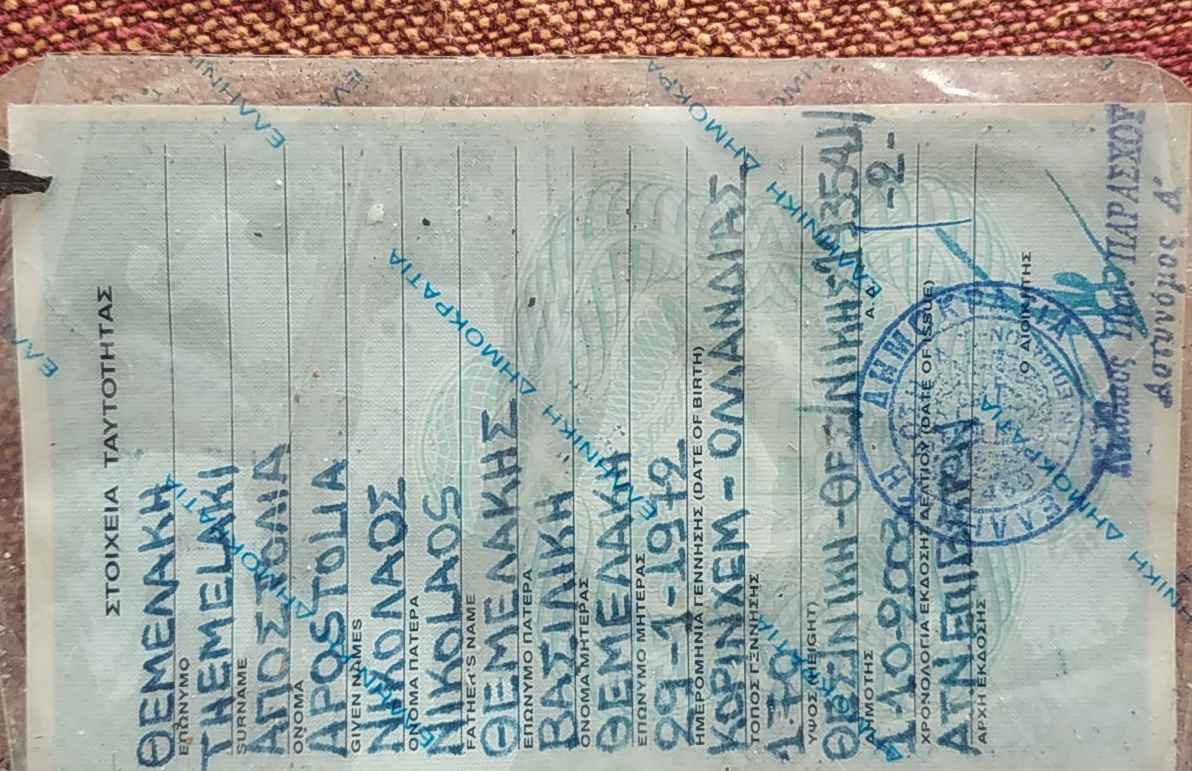 ΣΤΟΙΧΕΙΑ ΤΑΥΤΟΤΗΤΑΣ
ΘΕΜΕΛΑΚΗ
ΕΠΩΝΥΜΟ
THEMELAKI
SURNAME
ΑΠΟΣΤΟΛΙΑ
ΟΝΟΜΑ
APOSTOLIA
GIVEN NAMES
ΝΙΚΟΛΑΟΣ
ΟΝΟΜΑ ΠΑΤΕΡΑ
NIKOLAOS
FATHER'S NAME
ΘΕΜΕΛΑΚΗΣ
ΕΠΩΝΥΜΟ ΠΑΤΕΡΑ
ΒΑΣΙΛΙΚΗ
ΟΝΟΜΑ ΜΗΤΕΡΑΣ
ΘΕΜΕΛΑΚΗ
ΕΠΩΝΥΜΟ ΜΗΤΕΡΑΣ
29-1-1972
ΗΜΕΡΟΜΗΝΙΑ ΓΕΝΝΗΣΗΣ (DATE OF BIRTH)
ΚΩΡΙΝΧΕΜ - ΟΛΛΑΝΔΙΑΣ
ΤΟΠΟΣ ΓΕΝΝΗΣΗΣ
1-70
ΥΨΟΣ (HEIGHT)
ΘΕΣ/ΝΙΚΗ-ΘΕΣ/ΝΙΚΗΣ
ΔΗΜΟΤΗΣ
Α.Δ.
1-10-2003
-2-
ΧΡΟΝΟΛΟΓΙΑ ΕΚΔΟΣΗΣ ΔΕΛΤΙΟΥ (DATE OF ISSUE)
ΑΡΧΗ ΕΚΔΟΣΗΣ
Ο ΔΙΟΙΚΗΤΗΣ
ΠΑΡΑΣΧΟΥ
Αστυνόμος Α΄
ΕΛΛΗΝΙΚΗ ΔΗΜΟΚΡΑΤΙΑ